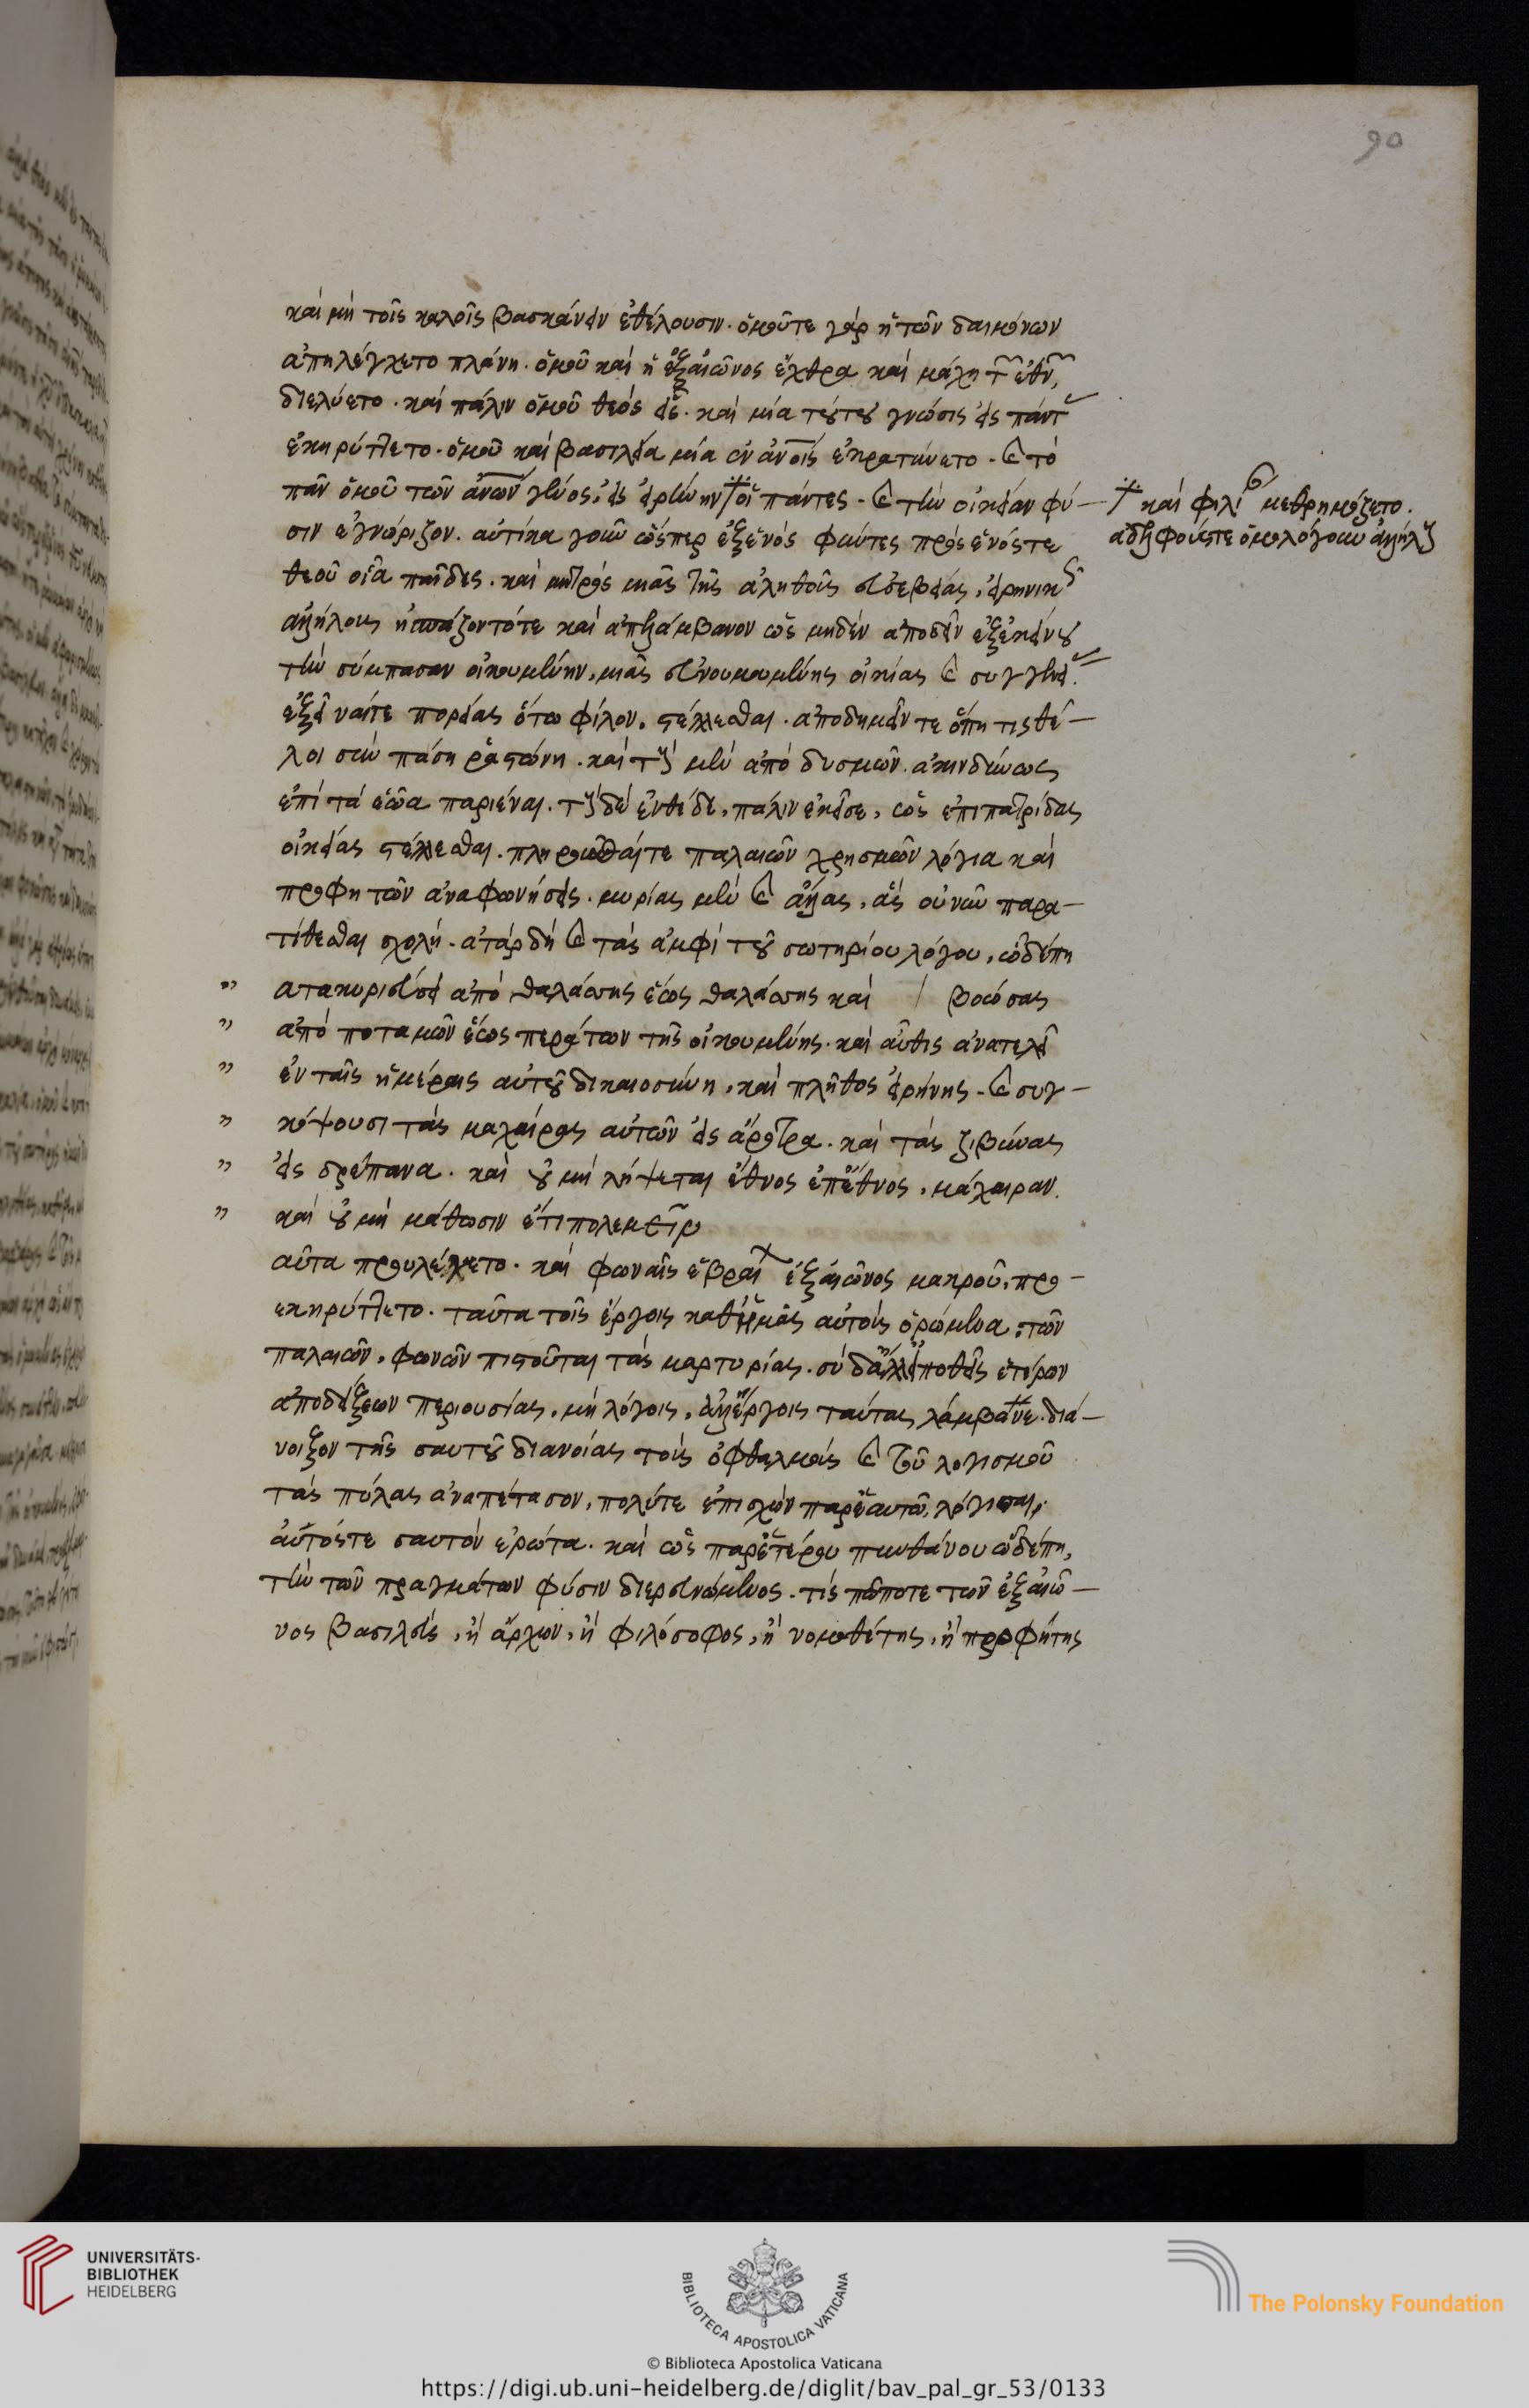 90
καὶ μὴ τοῖς καλοῖς βασκαίνειν ἐθέλουσιν. ὁμοῦτε γὰρ ἡ τῶν δαιμόνων
ἀπηλέγχετο πλάνη. ὁμοῦ καὶ ἡ ἐξαιῶνος ἔχθρα καὶ μάχη τ ἐθν
διελύετο. καὶ πάλιν ὁμοῦ θεὸς εἷς. καὶ μία τούτου γνῶσις εἰς πάντ
ἐκηρύττετο. ὁμοῦ καὶ βασιλεία μία ἐν ἀνοις ἐκρατύνετο. καὶ τὸ
πᾶν ὁμοῦ τῶν ἀνων γένος, εἰς εἰρήνην οἱ πάντες. καὶ τὴν οἰκείαν φύ-
καὶ φιλί μεθηρμόζετο.
ἀδελφούς τε ὡμολόγουν ἀλλήλους
σιν ἐγνώριζον. αὐτίκα γοῦν ὥσπερ ἐξενὸς φύντες πρὸς ἑνός τε
θεοῦ οἷα παῖδες. καὶ μητρὸς μιᾶς τῆς ἀληθοῦς εὐσεβείας, εἰρηνικ
ἀλλήλους ἠσπάζοντότε καὶ ἀπελάμβανον ὡς μηδὲν ἀποδεῖν ἐξεκείνου
τὴν σύμπασαν οἰκουμένην, μιᾶς εὐνομουμένης οἰκίας καὶ συγγενεί
ἐξεῖναίτε πορείας ὅτω φίλον. στέλλεσθαι. ἀποδημεῖν τε ὅπη τις θέ-
λοι σὺν πάση ῥαστώνη. καὶ τοὺς μὲν ἀπὸ δυσμῶν. ἀκινδύνως
ἐπὶ τὰ ἑῶα παριέναι. τοὺς δ' ἐνθένδε, πάλιν ἐκεῖσε, ὡς ἐπιπατρίδας
οἰκείας στέλλεσθαι. πληροῦσθαίτε παλαιῶν χρησμῶν λόγια καὶ
προφητῶν ἀναφωνήσεις. μυρίας μὲν καὶ ἄλλας, ἃς οὐ νῦν παρα-
τίθεσθαι σχολή. ἀτὰρ δὴ καὶ τὰς ἀμφὶ τοῦ σωτηρίου λόγου, ὧδέπη
ατακυριεύσει ἀπὸ θαλάσσης ἕως θαλάσσης καὶ / βοώσας
ἀπὸ ποταμῶν ἕως περάτων τῆς οἰκουμένης. καὶ αὖθις ἀνατελεῖ
ἐν ταῖς ἡμέραις αὐτοῦ δικαιοσύνη, καὶ πλῆθος εἰρήνης. καὶ συγ-
κόψουσι τὰς μαχαίρας αὐτῶν εἰς ἄροτρα. καὶ τὰς ζιβύνας
εἰς δρέπανα. καὶ οὐ μὴ λήψεται ἔθνος ἐπἔθνος, μάχαιραν.
καὶ οὐ μὴ μάθωσιν ἔτι πολεμεῖν
αῦτα προυλέγετο. καὶ φωναῖς ἑβραϊ ἐξαιῶνος μακροῦ, προ-
εκηρύττετο. ταῦτα τοῖς ἔργοις καθἡμᾶς αὐτοὺς ὁρώμενα, τῶν
παλαιῶν, φωνῶν πιστοῦται τὰς μαρτυρίας. σὺ δ' εἰ ποθεῖς ἑτέρων
ἀποδείξεων περιουσίας, μὴ λόγοις, ἀλλἔργοις ταύτας λάμβανε. διά-
νοιξον τῆς σαυτοῦ διανοίας τοὺς ὀφθαλμοὺς καὶ τοῦ λογισμοῦ
τὰς πύλας ἀναπέτασον, πολύτε ἐπισχὼν παρἑαυτῶ, λόγισαι,
αὐτόστε σαυτὸν ἐρώτα. καὶ ὡς παρἑτέρου πυνθάνου ὧδέπη,
τὴν τῶν πραγμάτων φύσιν διερευνώμενος. τίς πώποτε τῶν ἐξαιῶ-
νος βασιλεύς, ἢ ἄρχων, ἢ φιλόσοφος, ἢ νομοθέτης, ἢ προφήτης
UNIVERSITÄTS-
BIBLIOTHEK
HEIDELBERG
BIBLIOTECA APOSTOLICA VATICANA
The Polonsky Foundation
© Biblioteca Apostolica Vaticana
https://digi.ub.uni-heidelberg.de/diglit/bav_pal_gr_53/0133